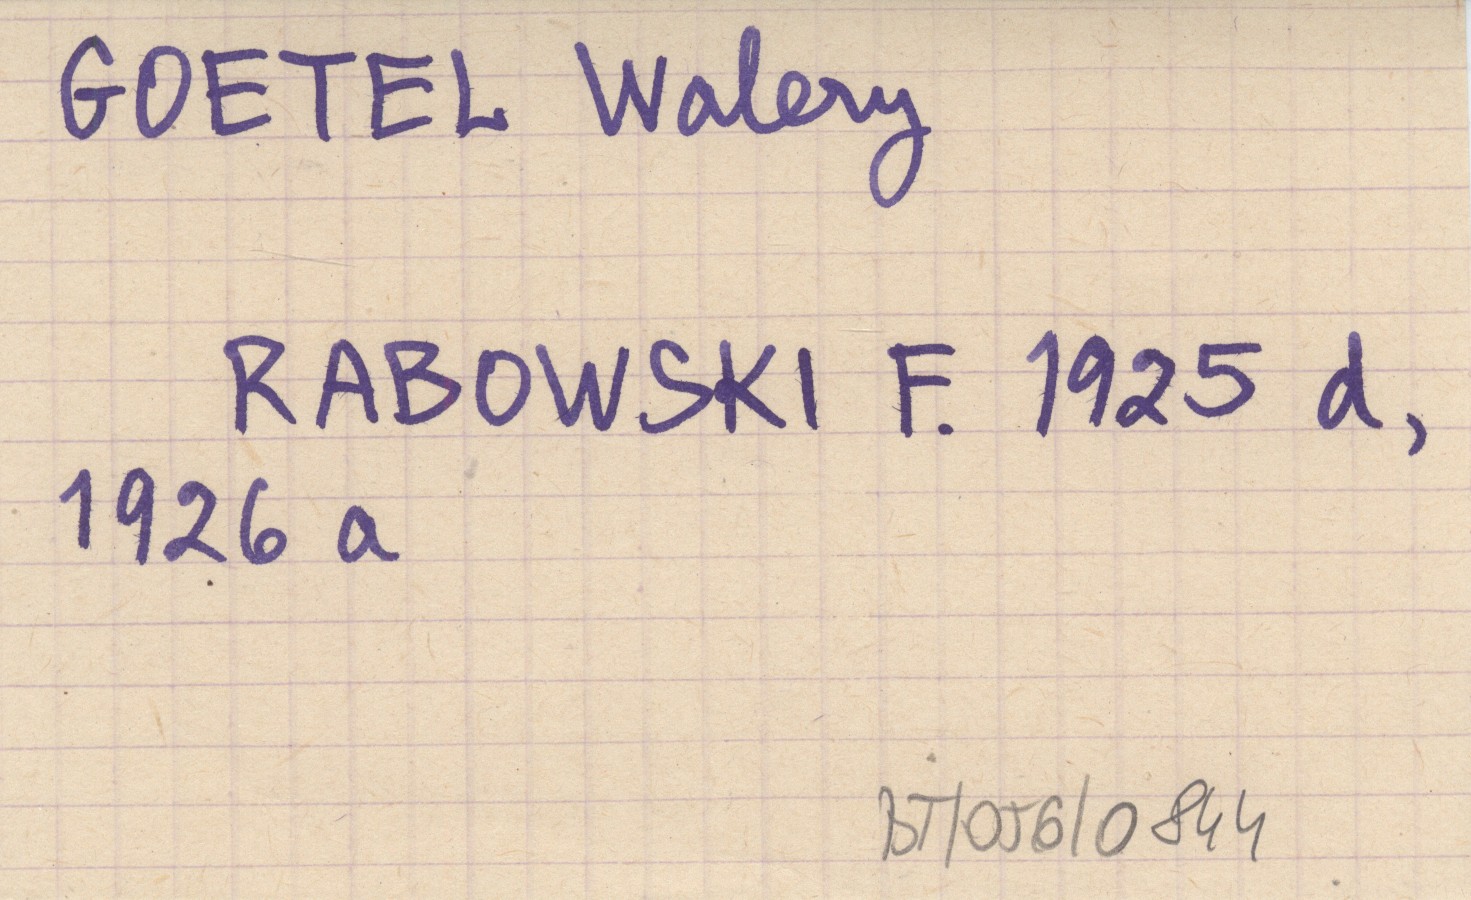 GOETEL Walery
RABOWSKI F. 1925 d,
1926 a
BT/056/0844